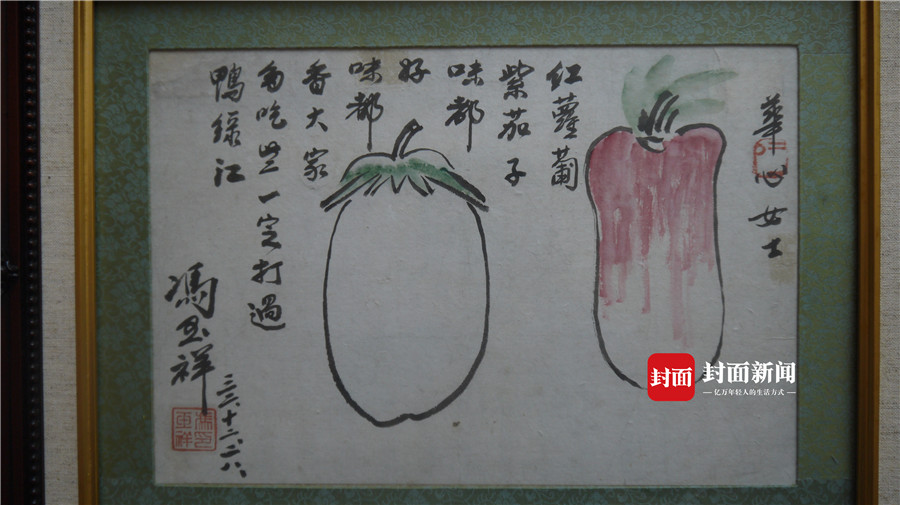 華心女士
红蘿蔔
紫茄子
味都
好
味都
香大家
多吃些一定打過
鴨緑江
馮玉祥
三三、十二、二八、
馮玉祥
封面
封面新闻
亿万年轻人的生活方式